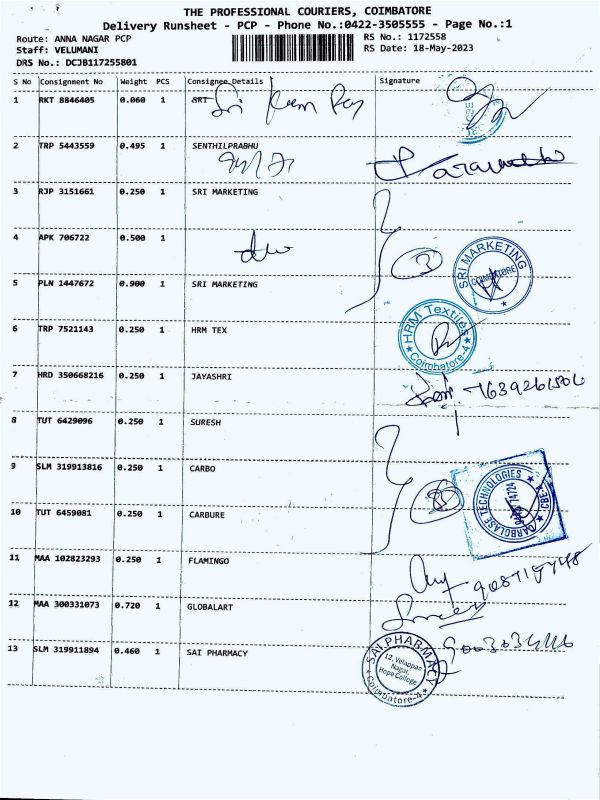 THE PROFESSIONAL COURIERS, COIMBATORE
Delivery Runsheet - PCP - Phone No.:0422-3505555 - Page No.:1
Route: ANNA NAGAR PCP
RS No.: 1172558
Staff: VELUMANI
RS Date: 18-May-2023
DRS No.: DCJB117255801
S No Consignment No Weight PCS Consignee Details Signature
1 RKT 8846405 0.060 1 SRT
2 TRP 5443559 0.495 1 SENTHILPRABHU
3 RJP 3151661 0.250 1 SRI MARKETING
4 APK 706722 0.500 1
3
SRI MARKETING
COIMBATORE
5 PLN 1447672 0.900 1 SRI MARKETING
6 TRP 7521143 0.250 1 HRM TEX
HRM Textiles
Coimbatore-4
7 HRD 350668216 0.250 1 JAYASHRI
8 TUT 6429096 0.250 1 SURESH
9 SLM 319913816 0.250 1 CARBO
CARBOLASE TECHNOLOGIES
CBE
10 TUT 6459081 0.250 1 CARBURE
11 MAA 102823293 0.250 1 FLAMINGO
12 MAA 300331073 0.720 1 GLOBALART
13 SLM 319911894 0.460 1 SAI PHARMACY
SAI PHARMACY
12, Velappan
Nagar,
Hope College
Coimbatore-4